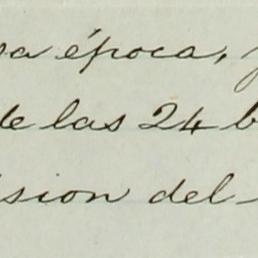 época,
de las 24
sion del